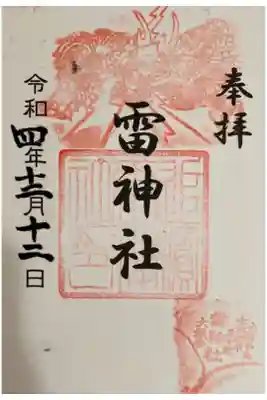 奉拝
雷神社
令和四年十二月十二日